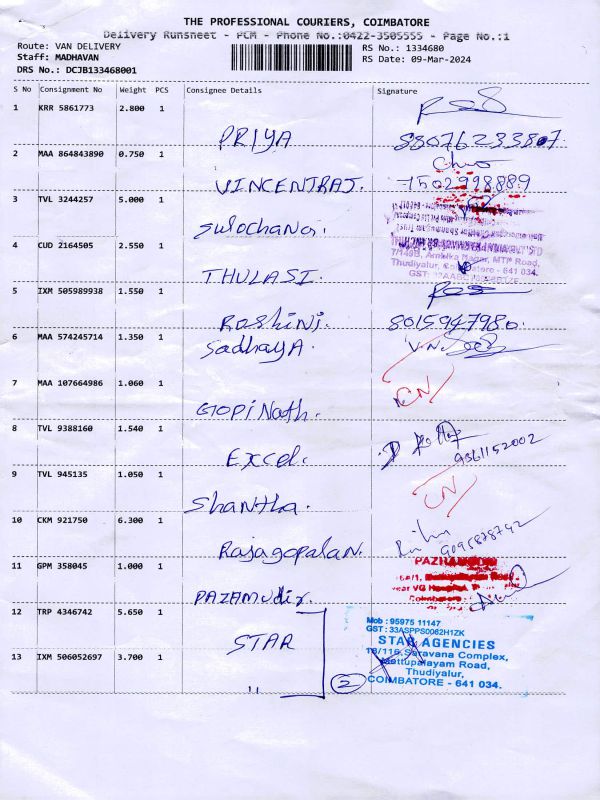 THE PROFESSIONAL COURIERS, COIMBATORE
Delivery Runsheet - PCM - Phone No.:0422-3505555 - Page No.:1
Route: VAN DELIVERY RS No.: 1334680
Staff: MADHAVAN RS Date: 09-Mar-2024
DRS No.: DCJB133468001
S No Consignment No Weight PCS Consignee Details Signature
1 KRR 5861773 2.800 1
PRIYA 88076233807
2 MAA 864843890 0.750 1
VINCENTRAJ. 7502998889
3 TVL 3244257 5.000 1
Sulochana.
4 CUD 2164505 2.550 1
7/149B, Ambika Nagar, MTP Road,
Thudiyalur, Coimbatore - 641 034.
THULASI. GST:
5 IXM 505989938 1.550 1
Roshini. 8015947980.
6 MAA 574245714 1.350 1
Sadhaya. V.N.
7 MAA 107664986 1.060 1
CN
GOPiNath.
8 TVL 9388160 1.540 1
Excel. 9361152002
9 TVL 945135 1.050 1
CN
Shantha.
10 CKM 921750 6.300 1
Rajagopalan. 9095878742
11 GPM 358045 1.000 1
PAZAMudir.
12 TRP 4346742 5.650 1
STAR
Mob : 95975 11147
GST : 33ASPPS0062H1ZK
STAR AGENCIES
18/116, Saravana Complex,
Mettupalayam Road,
Thudiyalur,
COIMBATORE - 641 034.
13 IXM 506052697 3.700 1
,, 2